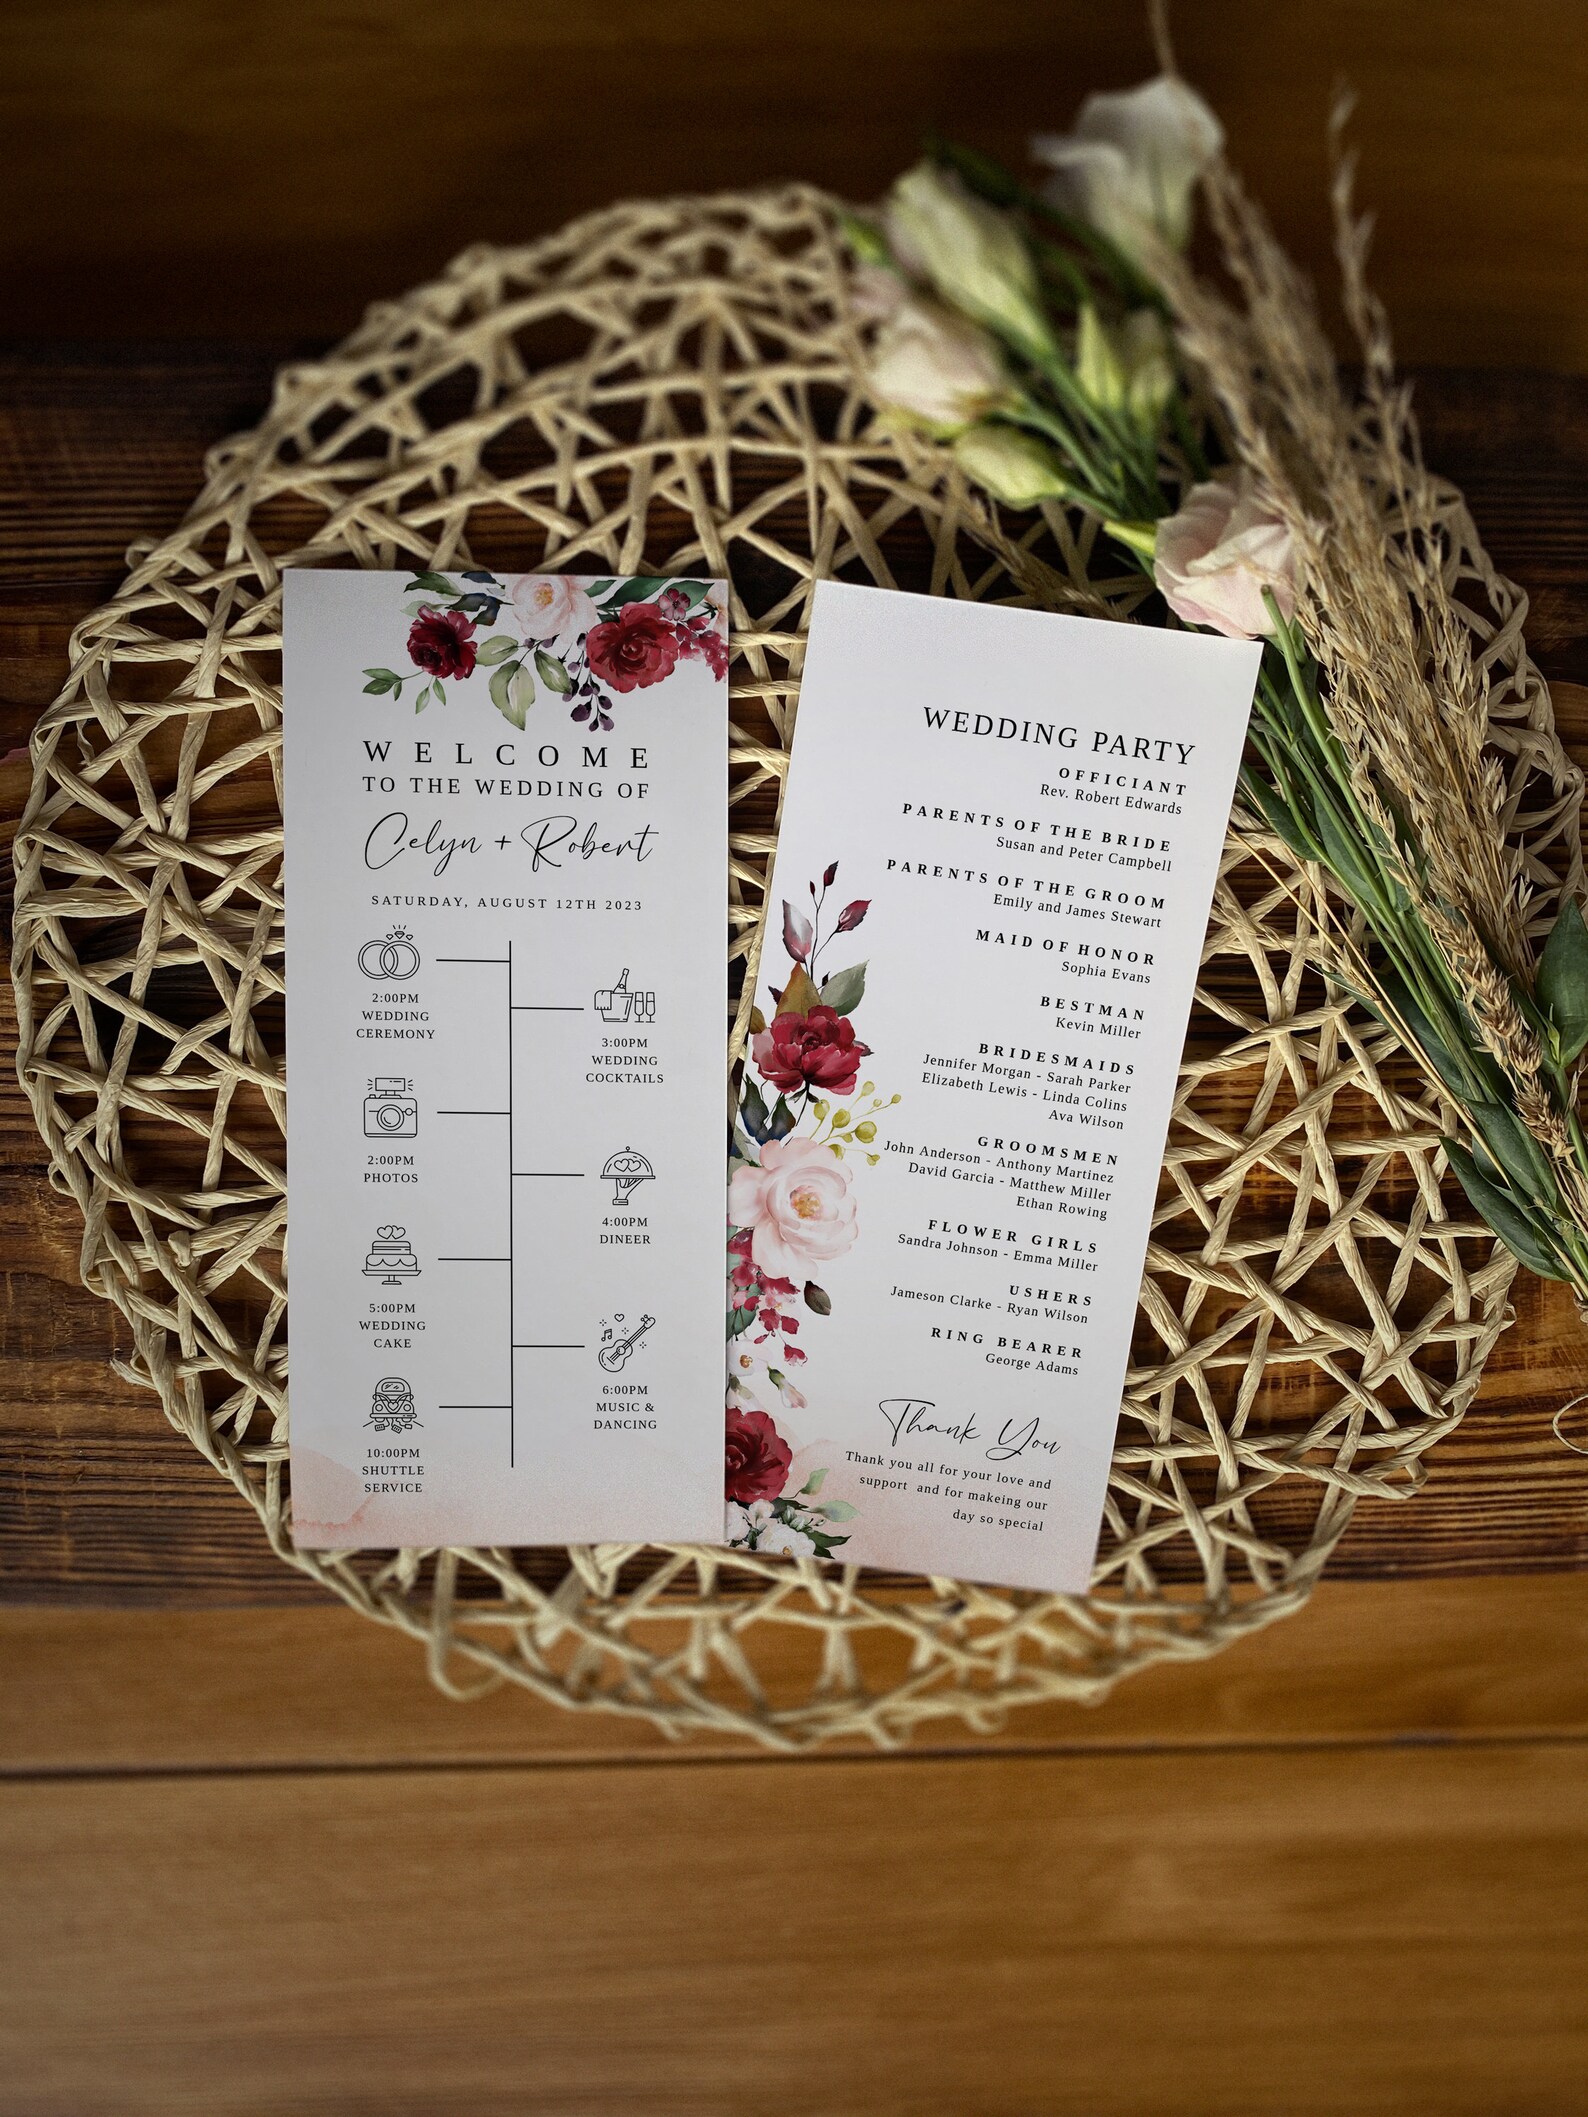 WELCOME
TO THE WEDDING OF
Celyn + Robert
SATURDAY, AUGUST 12TH 2023
2:00PM
WEDDING
CEREMONY
3:00PM
WEDDING
COCKTAILS
2:00PM
PHOTOS
4:00PM
DINEER
5:00PM
WEDDING
CAKE
6:00PM
MUSIC &
DANCING
10:00PM
SHUTTLE
SERVICE
WEDDING PARTY
OFFICIANT
Rev. Robert Edwards
PARENTS OF THE BRIDE
Susan and Peter Campbell
PARENTS OF THE GROOM
Emily and James Stewart
MAID OF HONOR
Sophia Evans
BESTMAN
Kevin Miller
BRIDESMAIDS
Jennifer Morgan - Sarah Parker
Elizabeth Lewis - Linda Colins
Ava Wilson
GROOMSMEN
John Anderson - Anthony Martinez
David Garcia - Matthew Miller
Ethan Rowing
FLOWER GIRLS
Sandra Johnson - Emma Miller
USHERS
Jameson Clarke - Ryan Wilson
RING BEARER
George Adams
Thank You
Thank you all for your love and
support and for makeing our
day so special